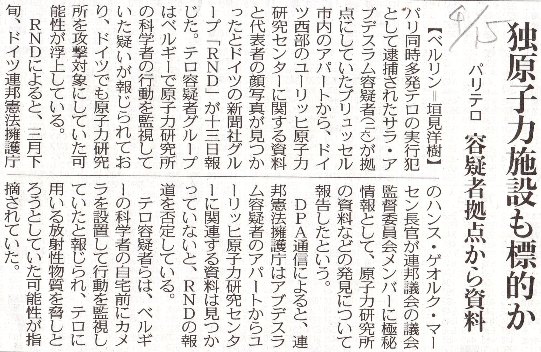 4/15
独原子力施設も標的か
パリテロ　容疑者拠点から資料
【ベルリン=垣見洋樹】
パリ同時多発テロの実行犯
として逮捕されたサラ・ア
ブデスラム容疑者(二六)が拠
点にしていたブリュッセル
市内のアパートから、ドイ
ツ西部のユーリッヒ原子力
研究センターに関する資料
と代表者の顔写真が見つか
ったとドイツの新聞社グル
ープ「RND」が十三日報
じた。テロ容疑者グループ
はベルギーで原子力研究所
の科学者の行動を監視して
いた疑いが報じられてお
り、ドイツでも原子力研究
所を攻撃対象にしていた可
能性が浮上している。
RNDによると、三月下
旬、ドイツ連邦憲法擁護庁
のハンス・ゲオルク・マー
セン長官が連邦議会の議会
監督委員会メンバーに極秘
情報として、原子力研究所
の資料などの発見について
報告したという。
DPA通信によると、連
邦憲法擁護庁はアブデスラ
ム容疑者のアパートからユ
ーリッヒ原子力研究センタ
ーに関連する資料は見つか
っていないと、RNDの報
道を否定している。
テロ容疑者らは、ベルギ
ーの科学者の自宅前にカメ
ラを設置して行動を監視し
ていたと報じられ、テロに
用いる放射性物質を脅しと
ろうとしていた可能性が指
摘されていた。